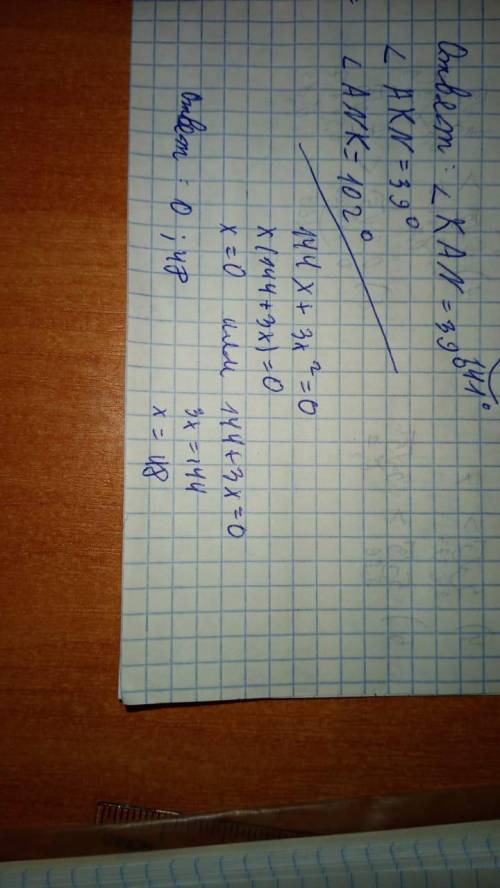 Ответ: ∠KAN = 39°
141°
∠AKN = 39°
∠ANK = 102°
144x + 3x² = 0
x(144 + 3x) = 0
x = 0 или 144 + 3x = 0
3x = 144
x = 48
Ответ: 0; 48